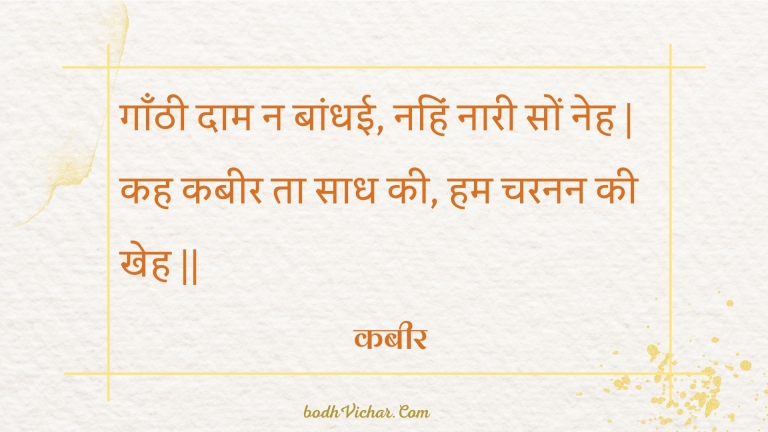 गाँठी दाम न बांधई, नहिं नारी सों नेह |
कह कबीर ता साध की, हम चरनन की
खेह ||
कबीर
bodhVichar.Com